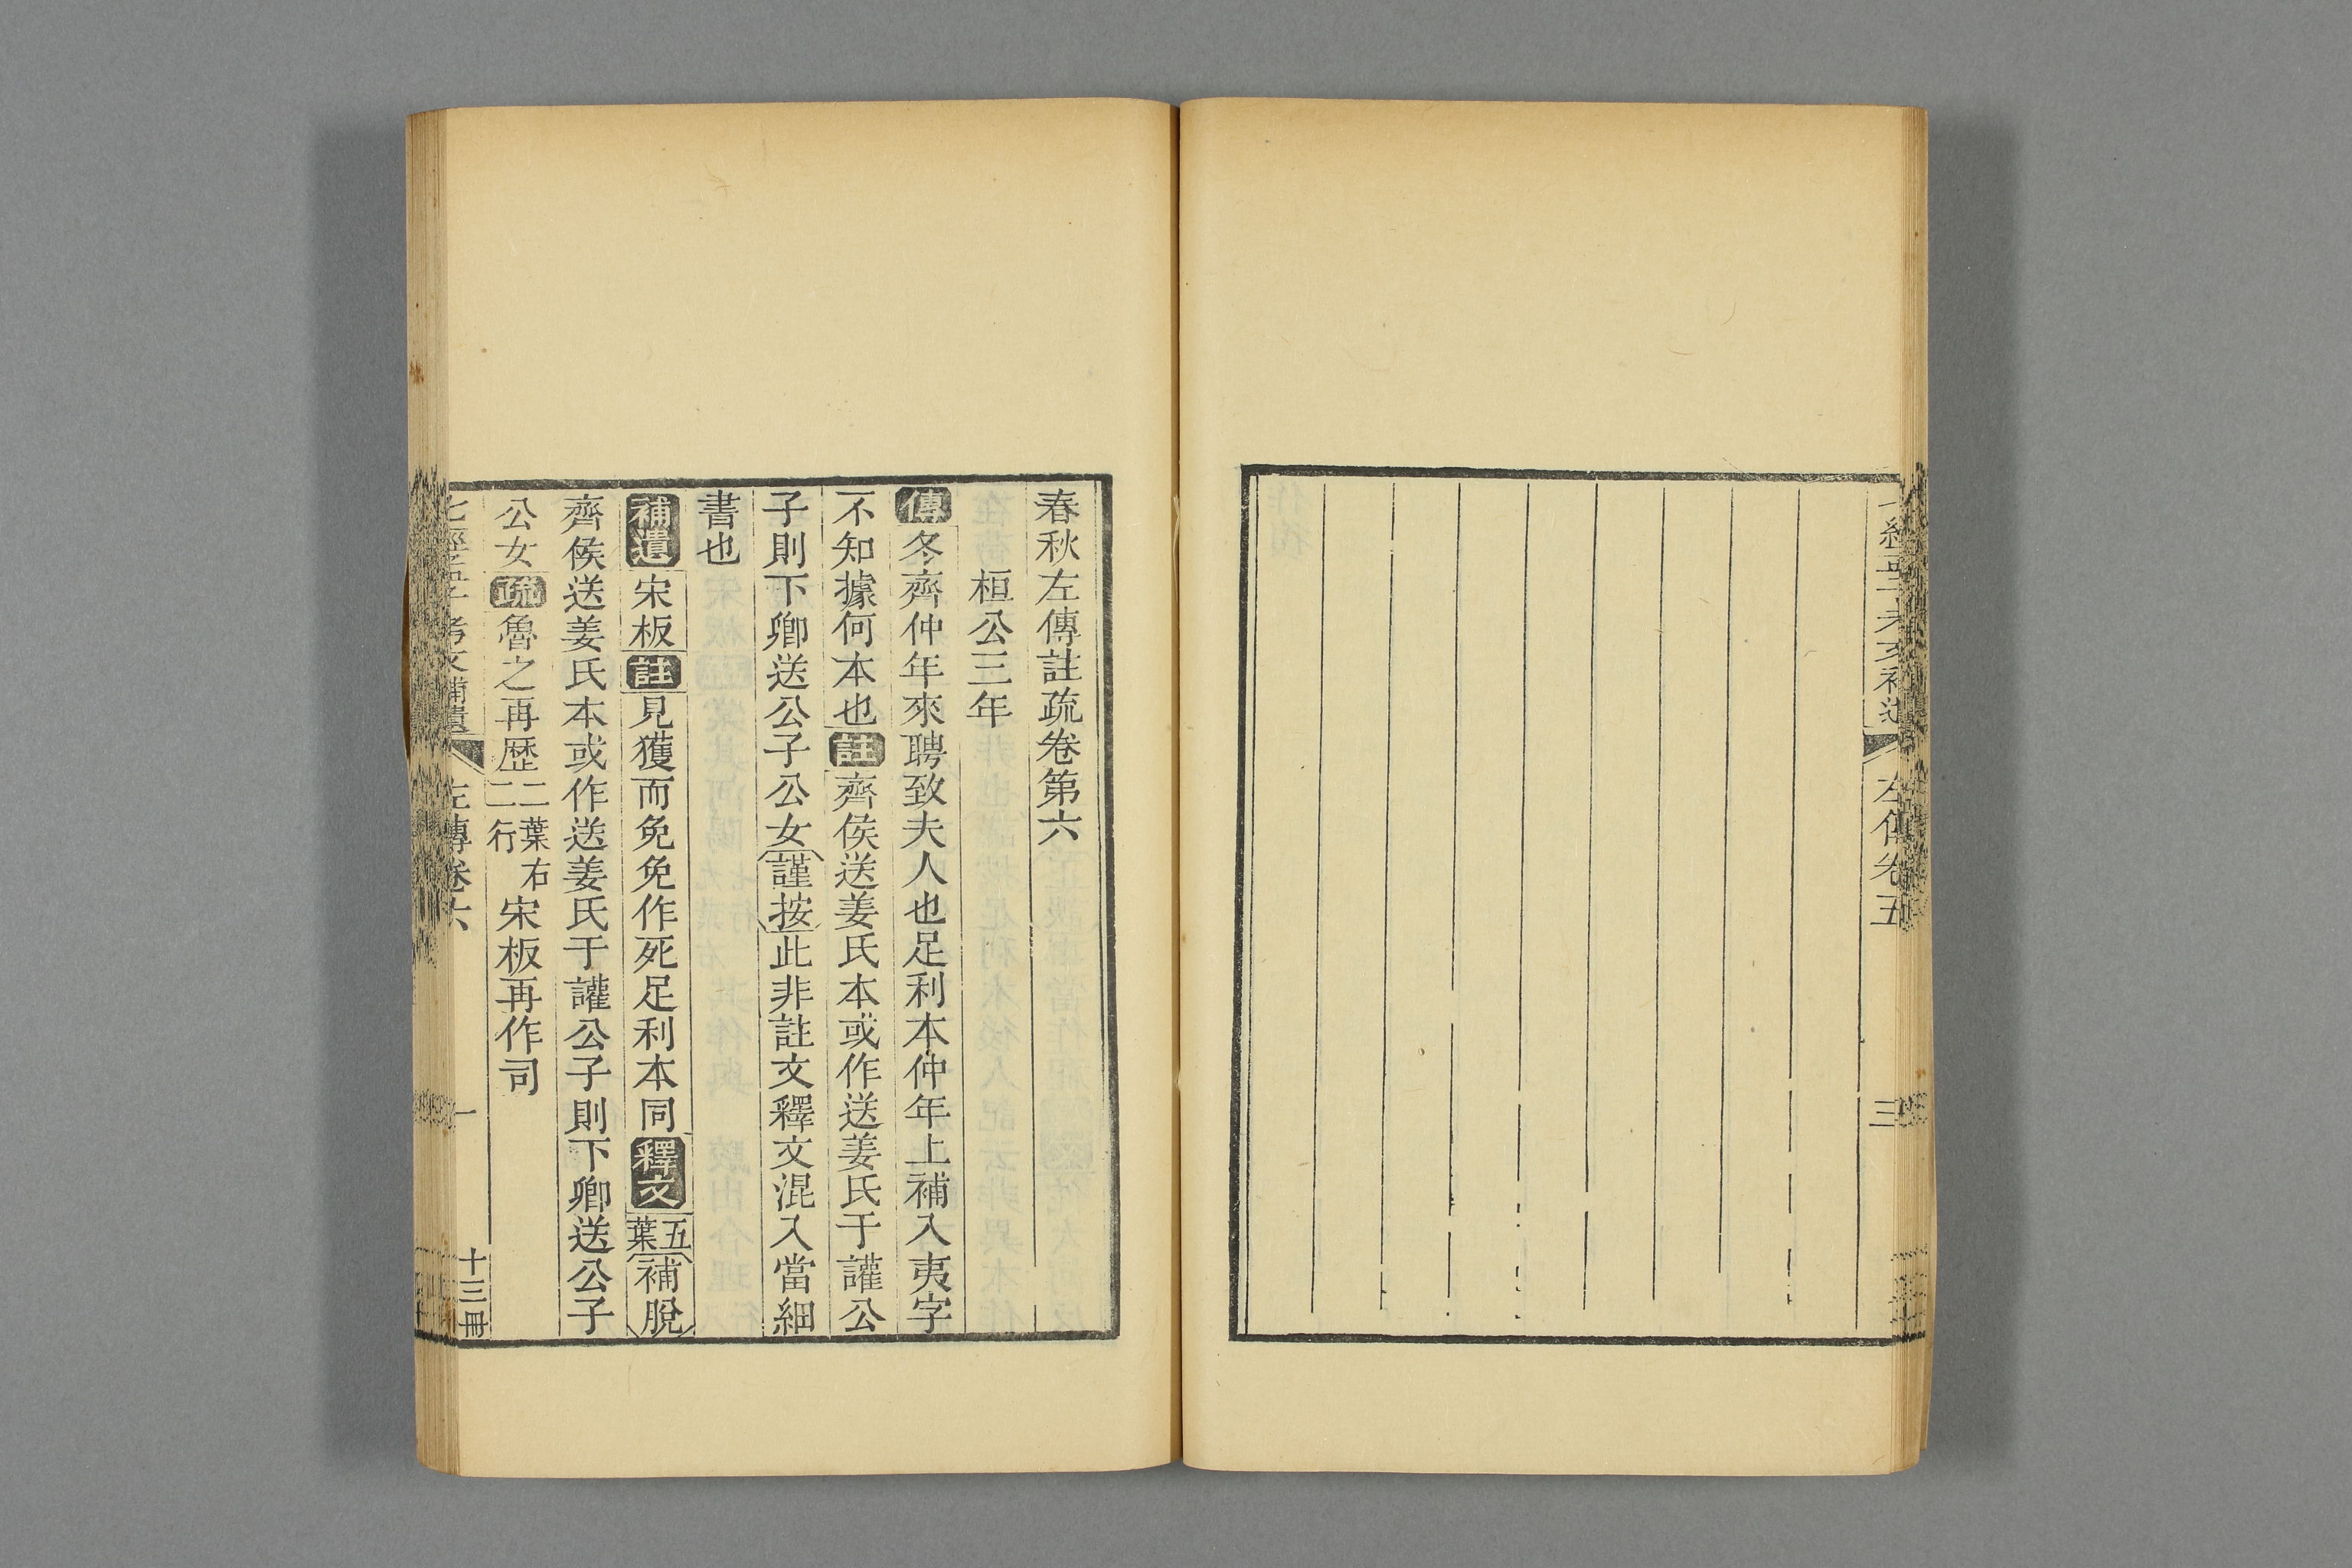 左傳卷五
三
春秋左傳註疏卷第六
桓公三年
傳冬齊仲年來聘致夫人也足利本仲年上補入夷字
不知據何本也註齊侯送姜氏本或作送姜氏于讙公
子則下卿送公子公女謹按此非註文釋文混入當細
書也
補遺宋板註見獲而免免作死足利本同釋文五葉補脫
齊侯送姜氏本或作送姜氏于讙公子則下卿送公子
公女疏魯之再歷二葉右二行宋板再作司
七經孟子考文補遺
左傳卷六
一
十三冊